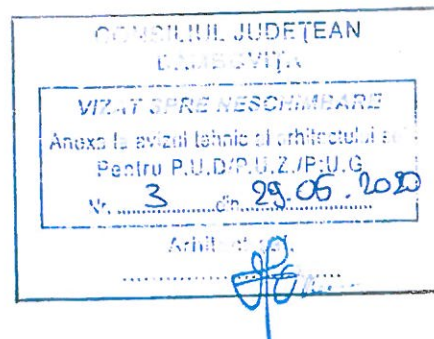 CONSILIUL JUDEȚEAN
DÂMBOVIȚA
VIZAT SPRE NESCHIMBARE
Anexa la avizul tehnic al arhitectului șef
Pentru P.U.D/P.U.Z./P.U.G
Nr. 3 din 29.06.2020
Arhitect șef,